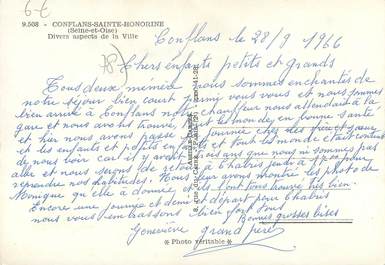 6€
9.508 - CONFLANS-SAINTE-HONORINE
(Seine-et-Oise)
Divers aspects de la Ville
Conflans le 28/9 1966
Chers enfants petits et grands
Tous deux mémée nous sommes enchantés de
notre séjour bien court parmi vous et nous sommes
bien arrivé à Conflans notre chauffeur nous attendait à la
gare et nous avons trouvé tout le monde en bonne santé
et hier nous avons passé la journée chez
et les enfants et petits enfants et tout le monde était content
de nous voir car il y avait ans que nous ni sommes pas
aller et nous serons de retour à Chabris jeudi à
reprendre nos habitudes. Nous leur avons montré les photo de
Monique qu'elle a donnée ils l'ont tous trouvé très bien.
Encore une journée et demie et départ pour Chabris
nous vous embrassons bien fort tous
Bonnes grosses bises
Geneviève grand père
* Photo véritable *